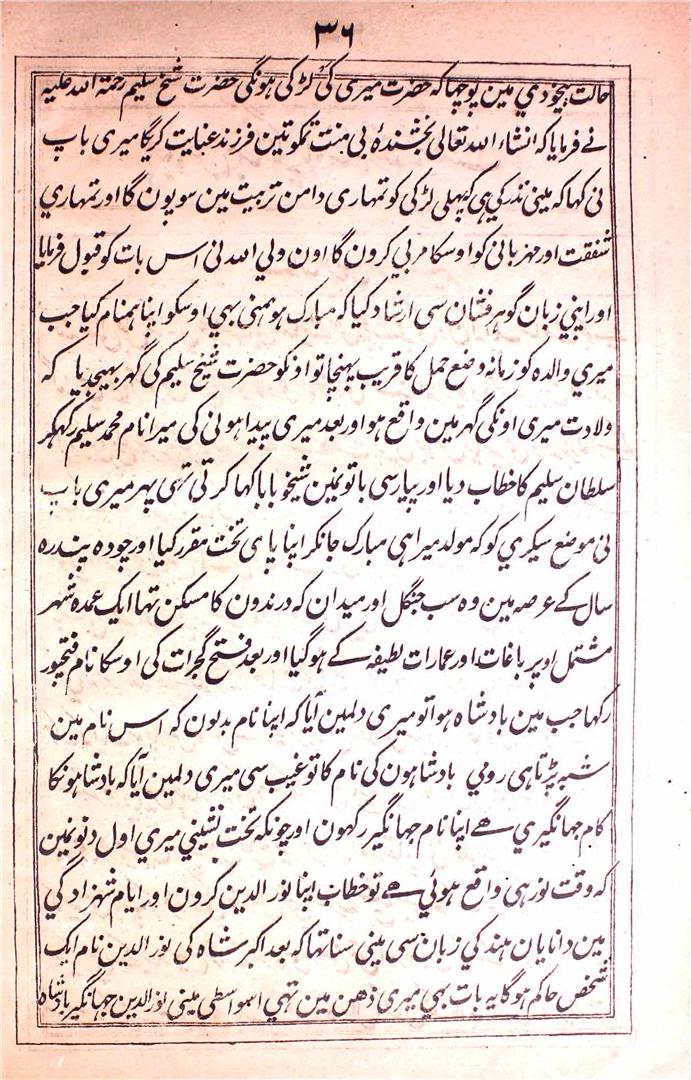 ۳۶
حالت بیخودي مین پوچھا کہ حضرت میری کَی لڑکی ہونگی حضرت شیخ سلیم رحمة اللہ علیہ
نے فرمایا کہ انشاء اللہ تعالی بخشندۂ بی منت تمکو تین فرزند عنایت کریگا میری باپ
نی کہا کہ مینی نذر کی ہی کہ پہلی لڑکی کو تمہاری دامن تربیت مین سوپون گا اور تمہاری
شفقت اور مہربانی کو اوسکا مربی کرون گا اون ولي اللہ نی اس بات کو قبول فرمایا
اور اپنی زبان گوہر فشان سی ارشاد کیا کہ مبارک ہو ہمنی بہی اوسکو اپنا ہمنام کیا جب
میري والدہ کو زمانہ وضع حمل کا قریب پہنچا تو انکو حضرت شیخ سلیم کی گہر بہیجدیا کہ
ولادت میری اونکی گہر مین واقع ہو اور بعد میری پیدا ہونی کی میرا نام محمد سلیم رکہکر
سلطان سلیم کا خطاب دیا اور پیار سی باتونمین شیخو بابا کہا کرتی تہی پہر میری باپ
نی موضع سیکري کو کہ مولد میرا ہی مبارک جانکر اپنا پای تخت مقرر کیا اور چودہ پندرہ
سال کے عرصہ مین وہ سب جنگل اور میدان کہ درندون کا مسکن تہا ایک عمدہ شہر
مشتمل اوپر باغات اور عمارات لطیفہ کے ہو گیا اور بعد فتح گجرات کی اوسکا نام فتحپور
رکہا جب مین بادشاہ ہوا تو میری دلمین آیا کہ اپنا نام بدلون کہ اس نام مین
شبہ پڑتا ہی رومي بادشاہون کی نام کا تو غیب سی میری دلمین آیا کہ بادشاہونکا
کام جہانگیري ھے اپنا نام جہانگیر رکہون اور چونکہ تخت نشیني میري اول دنونمین
کہ وقت نور ہی واقع ہوئي ھے تو خطاب اپنا نور الدین کرون اور ایام شہزادگي
مین دانایان ہند کي زبان سی مینی سنا تہا کہ بعد اکبر شاہ کی نور الدین نام ایک
شخص حاکم ہوگا یہ بات بہي میري ذہن مین تہي اسواسطی مینی نور الدین جہانگیر بادشاہ